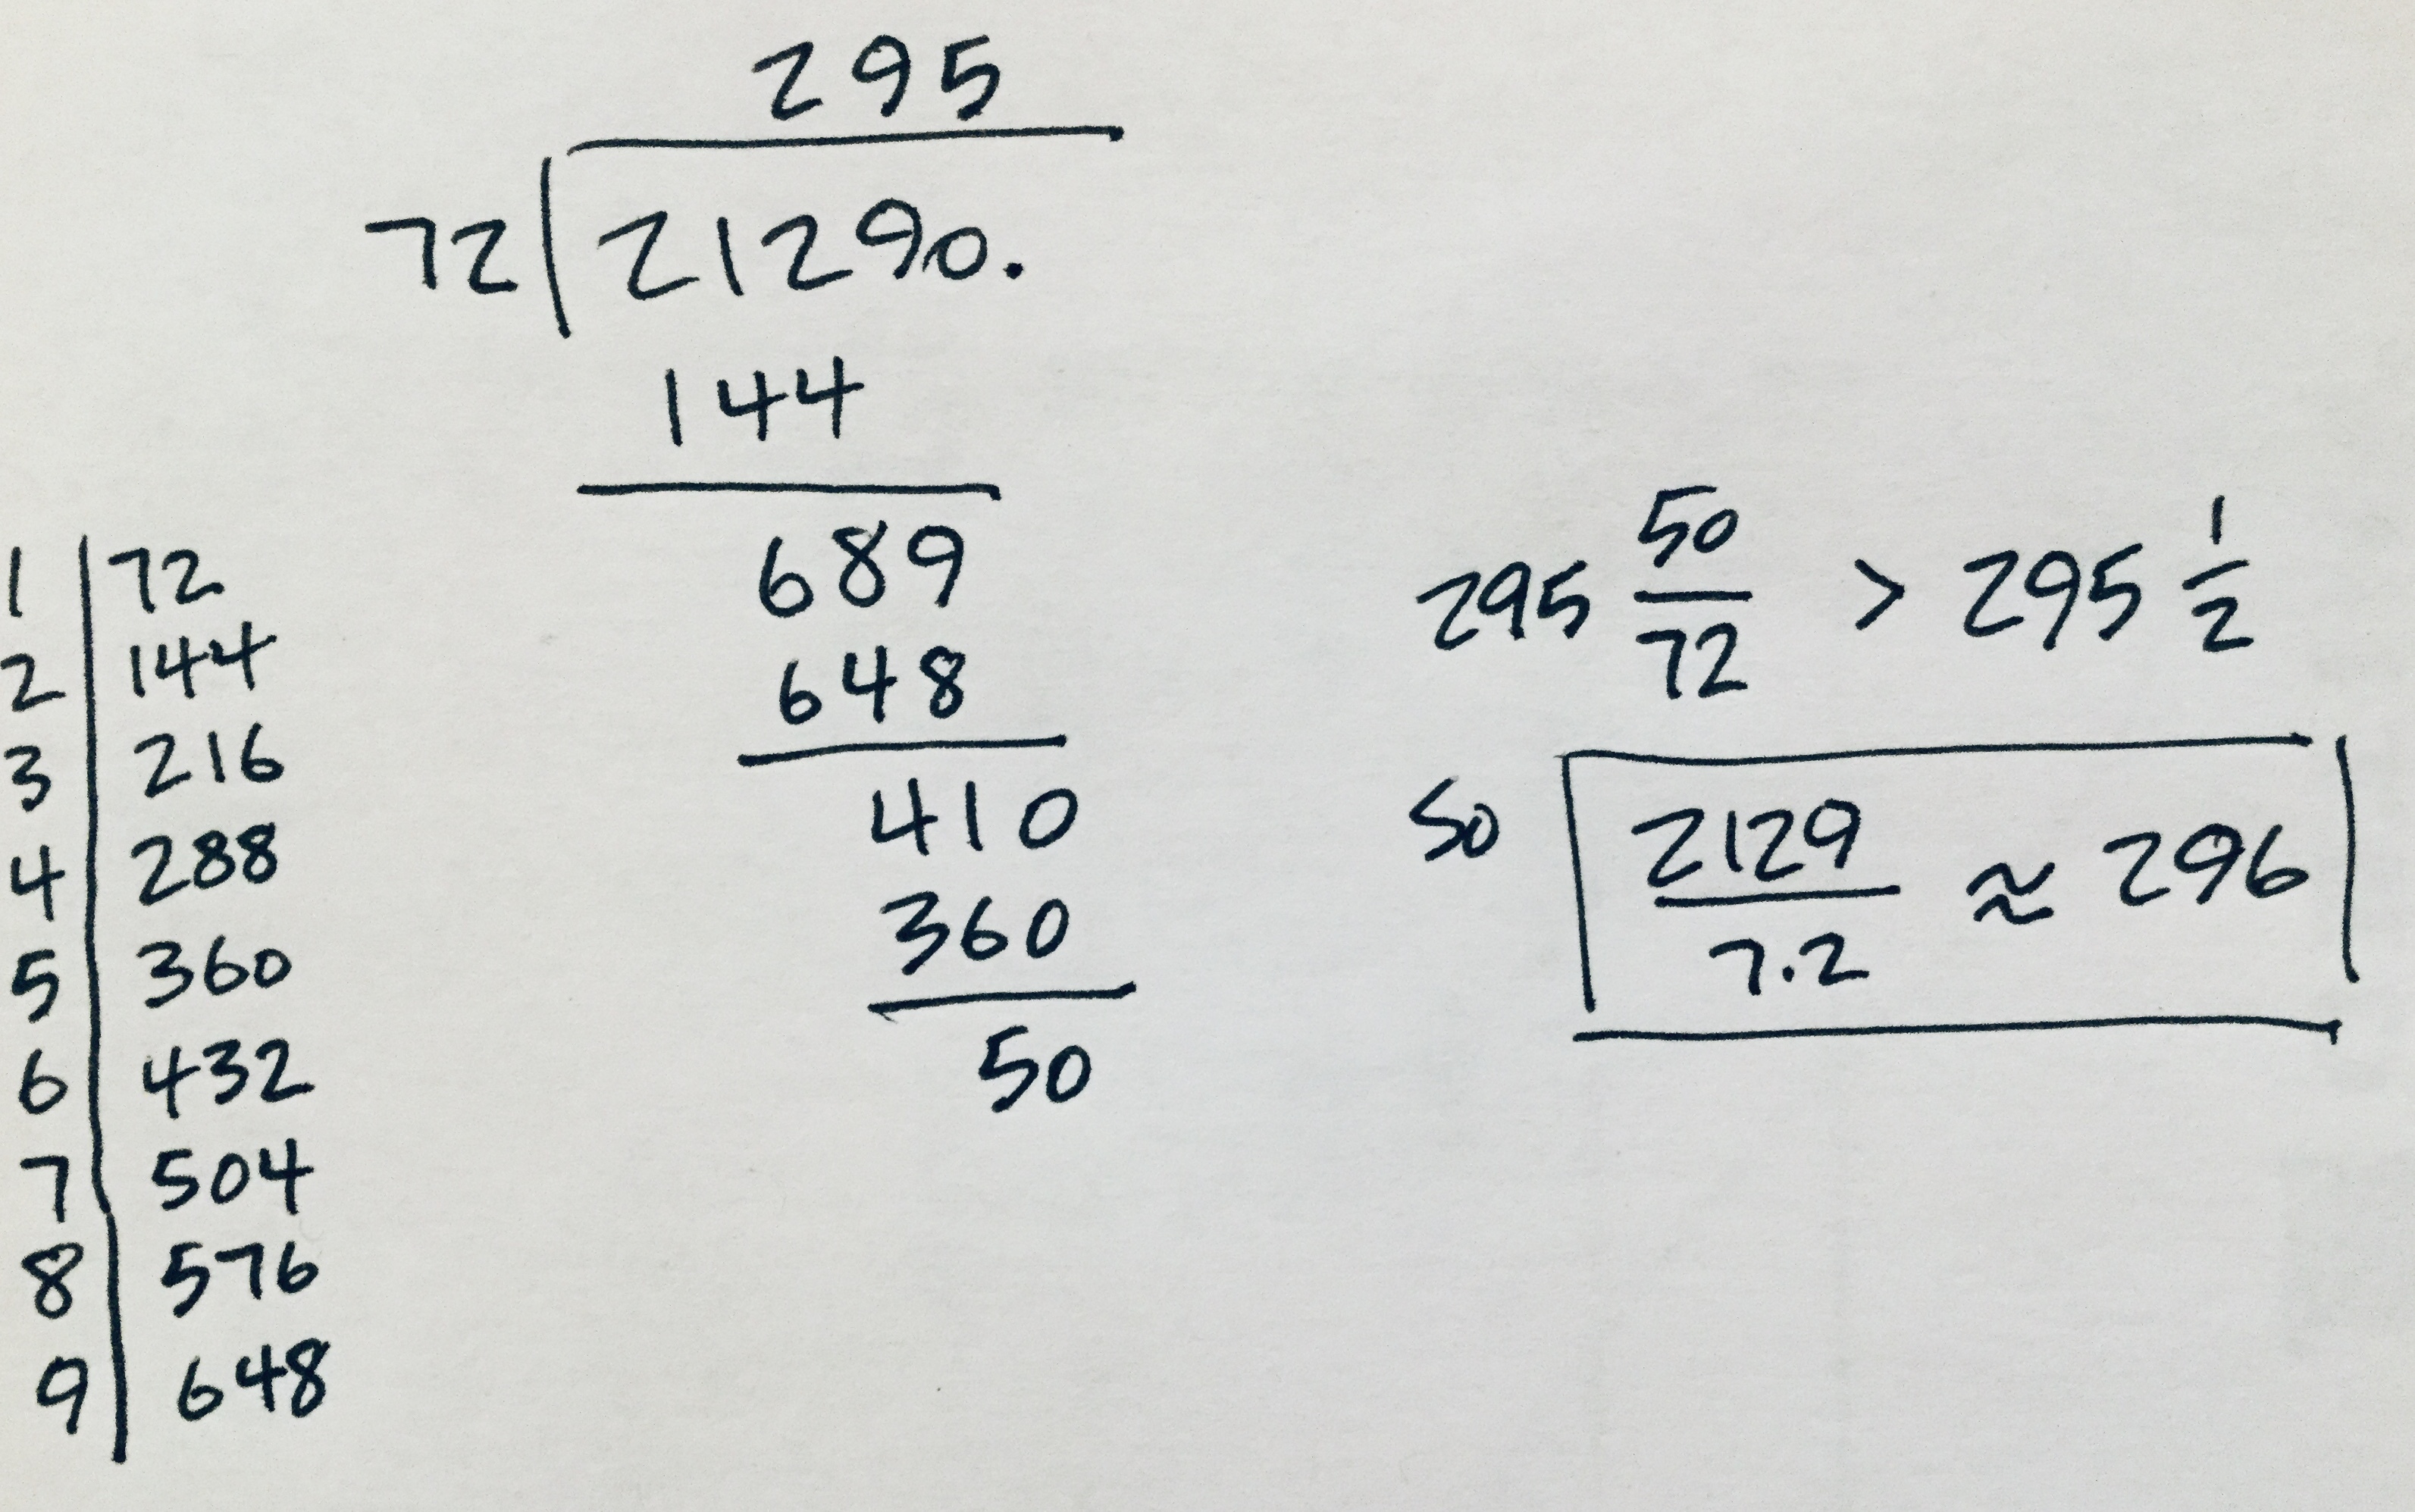 295
72 21290.
144
689
648
410
360
50
1 72
2 144
3 216
4 288
5 360
6 432
7 504
8 576
9 648
295 50/72 > 295 1/2
so 2129/7.2 ≈ 296